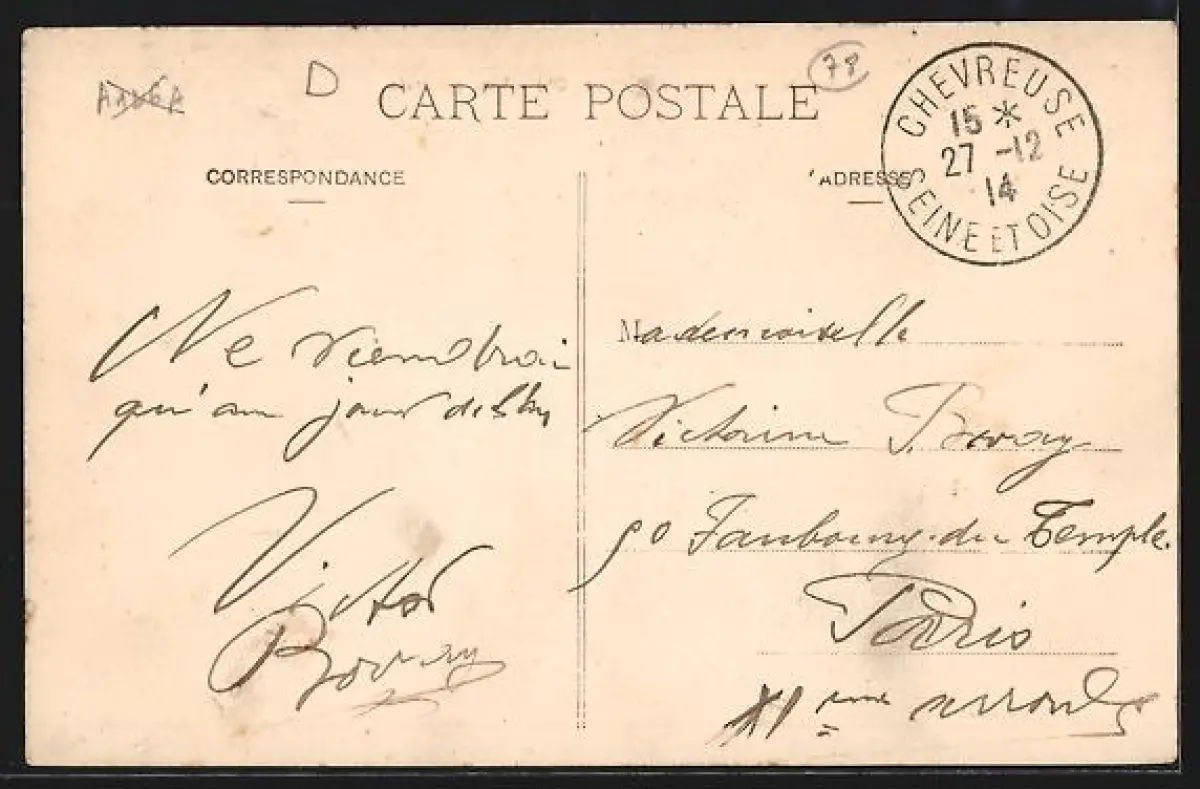 D
78
CARTE POSTALE
CHEVREUSE
15 *
27 -12
14
SEINE ET OISE
CORRESPONDANCE
ADRESSE
Ne viendrai
qu'au jour de l'an
Victor
Mademoiselle
Victorine
90 Faubourg du Temple
Paris
XI eme arrond